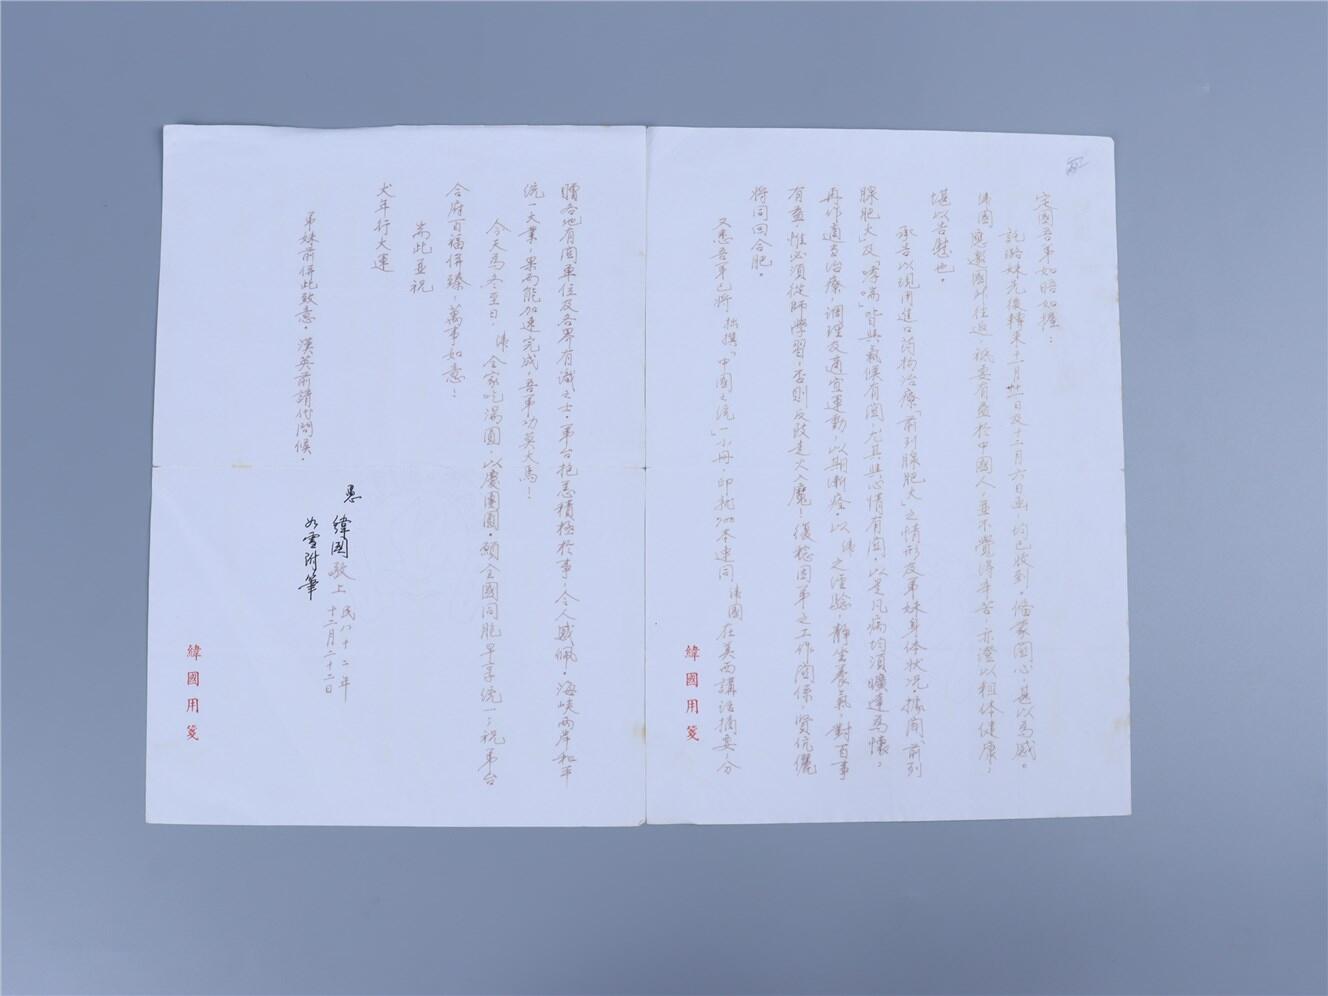 定國吾弟如晤如握：
託璐妹先後轉來十一月廿一日及十二月六日函，均已收到，僑蒙關心，甚以為感。
緯國應邀國外往返，祇要有益於中國人，並不覺得辛苦，亦澄以粗体健康，
堪以告慰也。
承告以現用進口药物治療「前列腺肥大」之情形及弟妹身体狀况。據聞前列
腺肥大」及「哮喘」皆與氣候有關，尤其與心情有關，以是凡病均須曠達為懷。
再作適當治療，調理及適宜運動，以期漸痊。以緯之經驗，靜坐養氣，對百事
有益，惟必須從師學習，否則反致走火入魔！復稔因弟之工作關係，賢伉儷
將同回合肥。
又悉吾弟已將拙撰「中國之統一」小冊，印就 本連同緯國在美西講話摘要，分
贈各地有關單位及各界有識之士。弟台抱恙積極於事，令人感佩。海峽兩岸和平
統一大業，果而能加速完成，吾弟功莫大焉！
今天為冬至日，緯全家吃湯圓，以慶團圓。願全國同胞早享統一，祝弟台
合府百福併臻，萬事如意！
耑此並祝
犬年行大運
弟妹前併此致意。漢英前請代問候。
愚 緯國敬上 民八十二年
十二月二十二日
如雪附筆
緯國用箋
緯國用箋